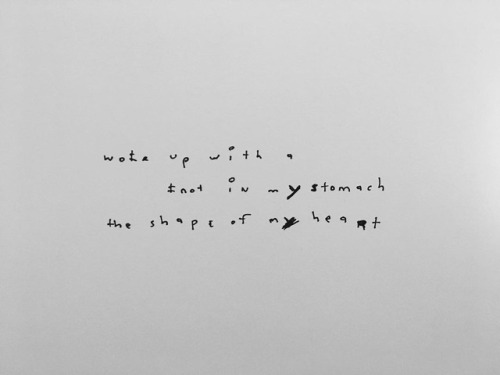 woke up with a
knot in my stomach
the shape of my heart